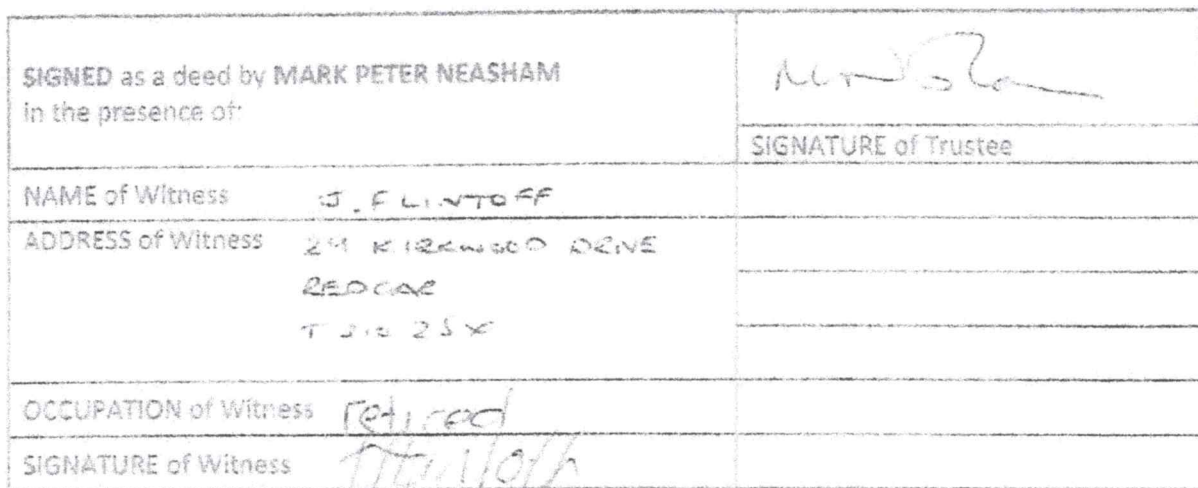 SIGNED as a deed by MARK PETER NEASHAM
in the presence of:
SIGNATURE of Trustee
NAME of Witness J. FLINTOFF
ADDRESS of Witness 24 KIRKWOOD DRIVE
REDCAR
OCCUPATION of Witness retired
SIGNATURE of Witness